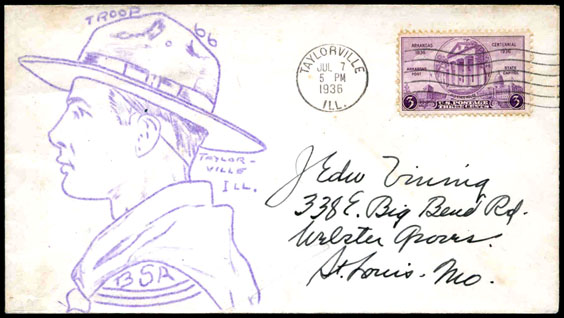 TROOP 66
TAYLOR-
VILLE
ILL.
BSA
TAYLORVILLE
JUL 7
5 PM
1936
ILL.
ARKANSAS CENTENNIAL
1836 1936
ARKANSAS POST
STATE CAPITOL
U.S. POSTAGE
THREE CENTS
3 3
J Edw Vining
338 E. Big Bend Rd.
Webster Groves.
St. Louis. Mo.